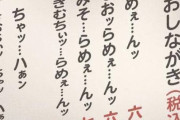 おしながき(税込
めぇ…んッ 六
おッらめぇ…んッ 六
みそ…らめぇ…んッ
きむちィッ…らめぇ…んッ
ちゃッ…ハぁ